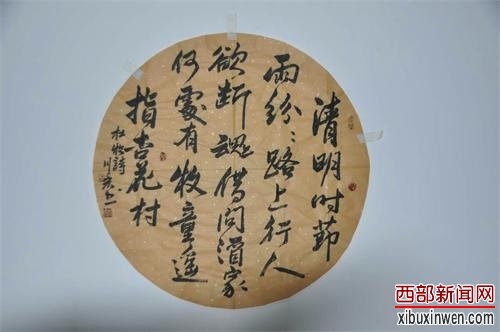 清明时節
雨纷々路上行人
欲断魂借问酒家
何處有牧童遥
指杏花村
杜牧詩
西部新闻网
xibuxinwen.com